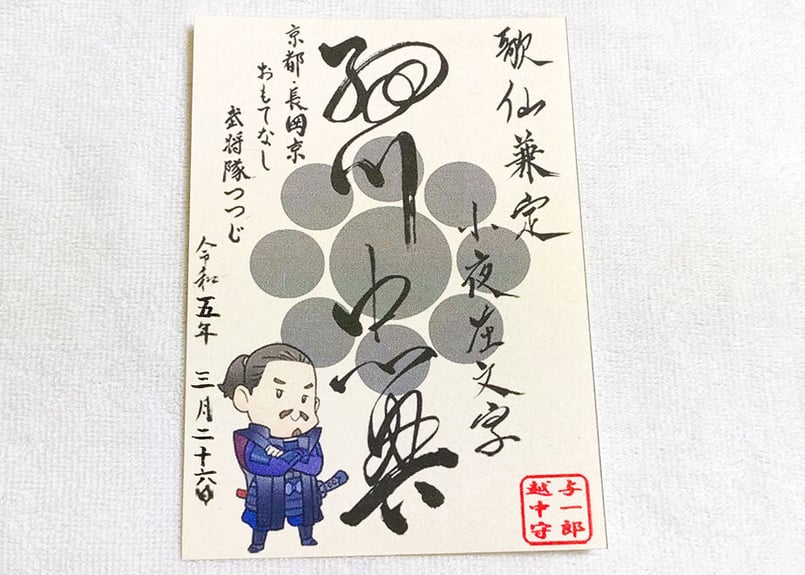 歌仙兼定
小夜左文字
細川忠興
京都・長岡京
おもてなし
武将隊つつじ
令和五年 三月二十六日
与一郎
越中守